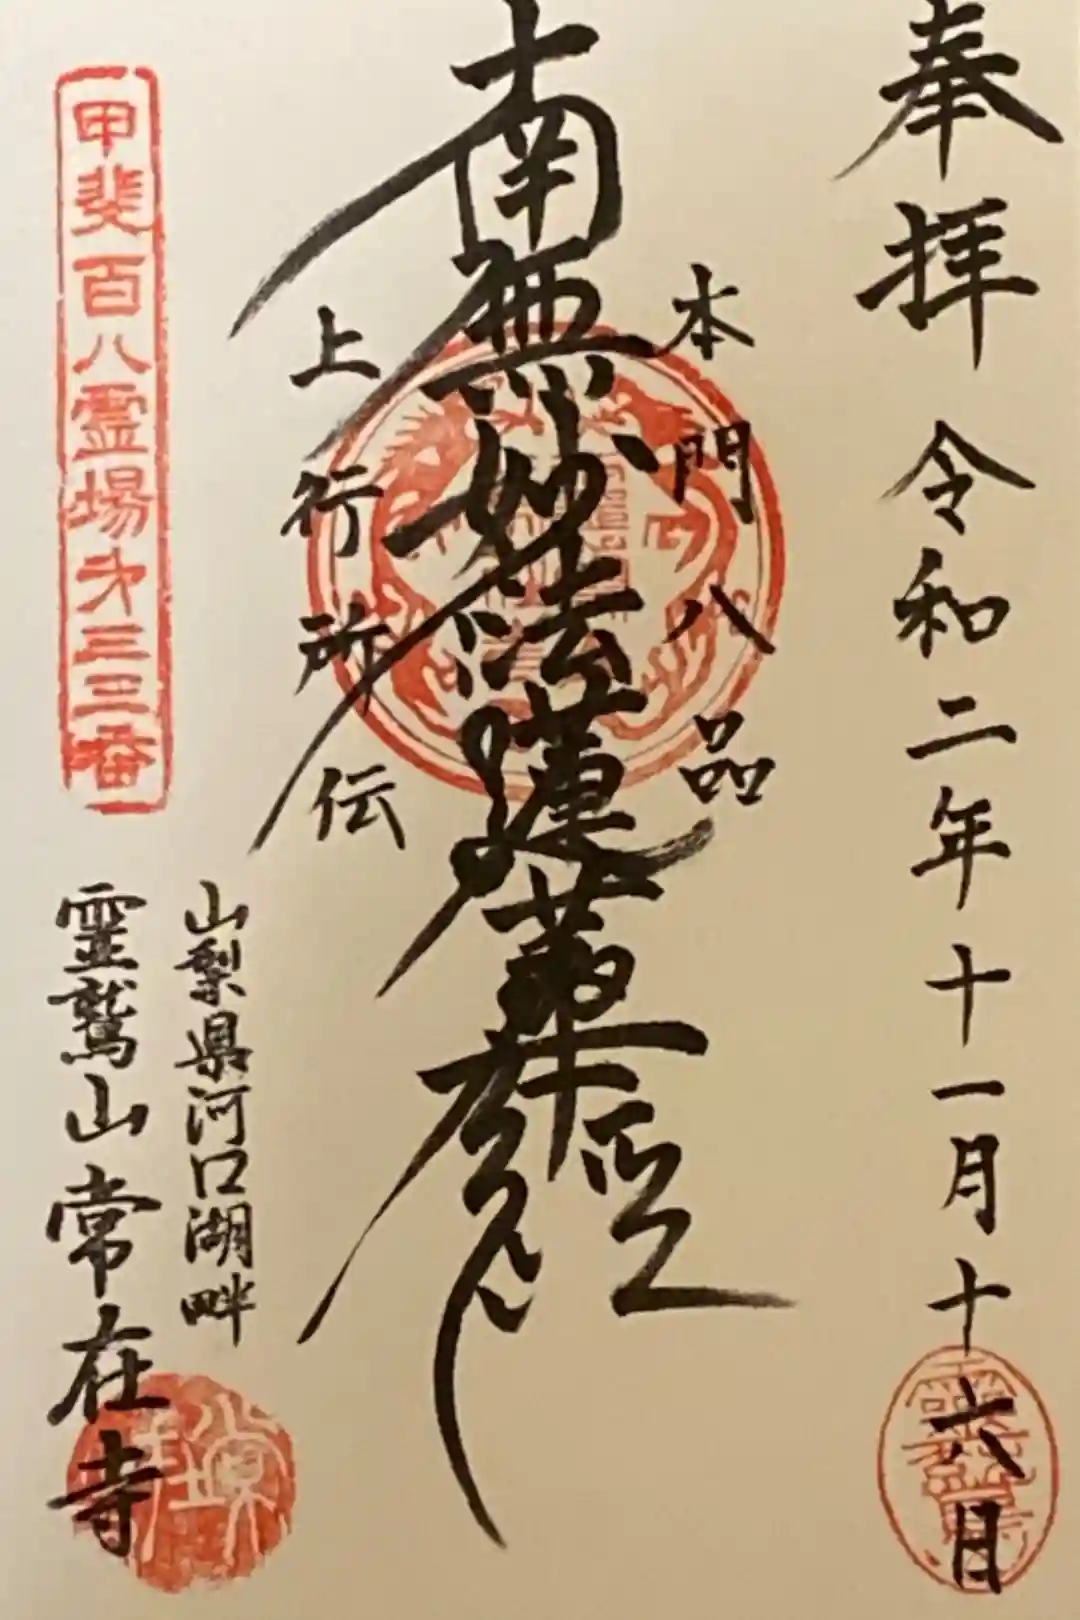 奉拝 令和二年十一月十六日
本門八品
南無妙法蓮華経
上行所伝
山梨県河口湖畔
霊鷲山常在寺
甲斐百八霊場第三三番